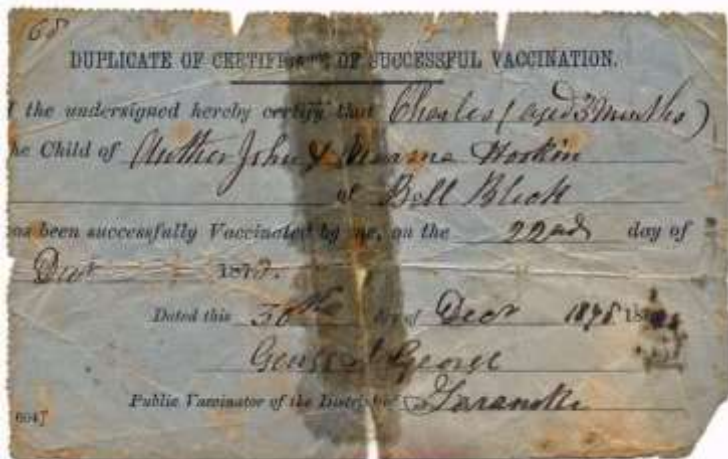 68
DUPLICATE OF CERTIFICATE OF SUCCESSFUL VACCINATION.
I the undersigned hereby certify that Charles (aged 3 months)
he Child of Arthur John & Hoskin
at Bell Block
has been successfully Vaccinated by me, on the 22nd day of
Decr 187
Dated this 30th day of Decr 1878 18
George
Public Vaccinator of the District of Taranaki
604]